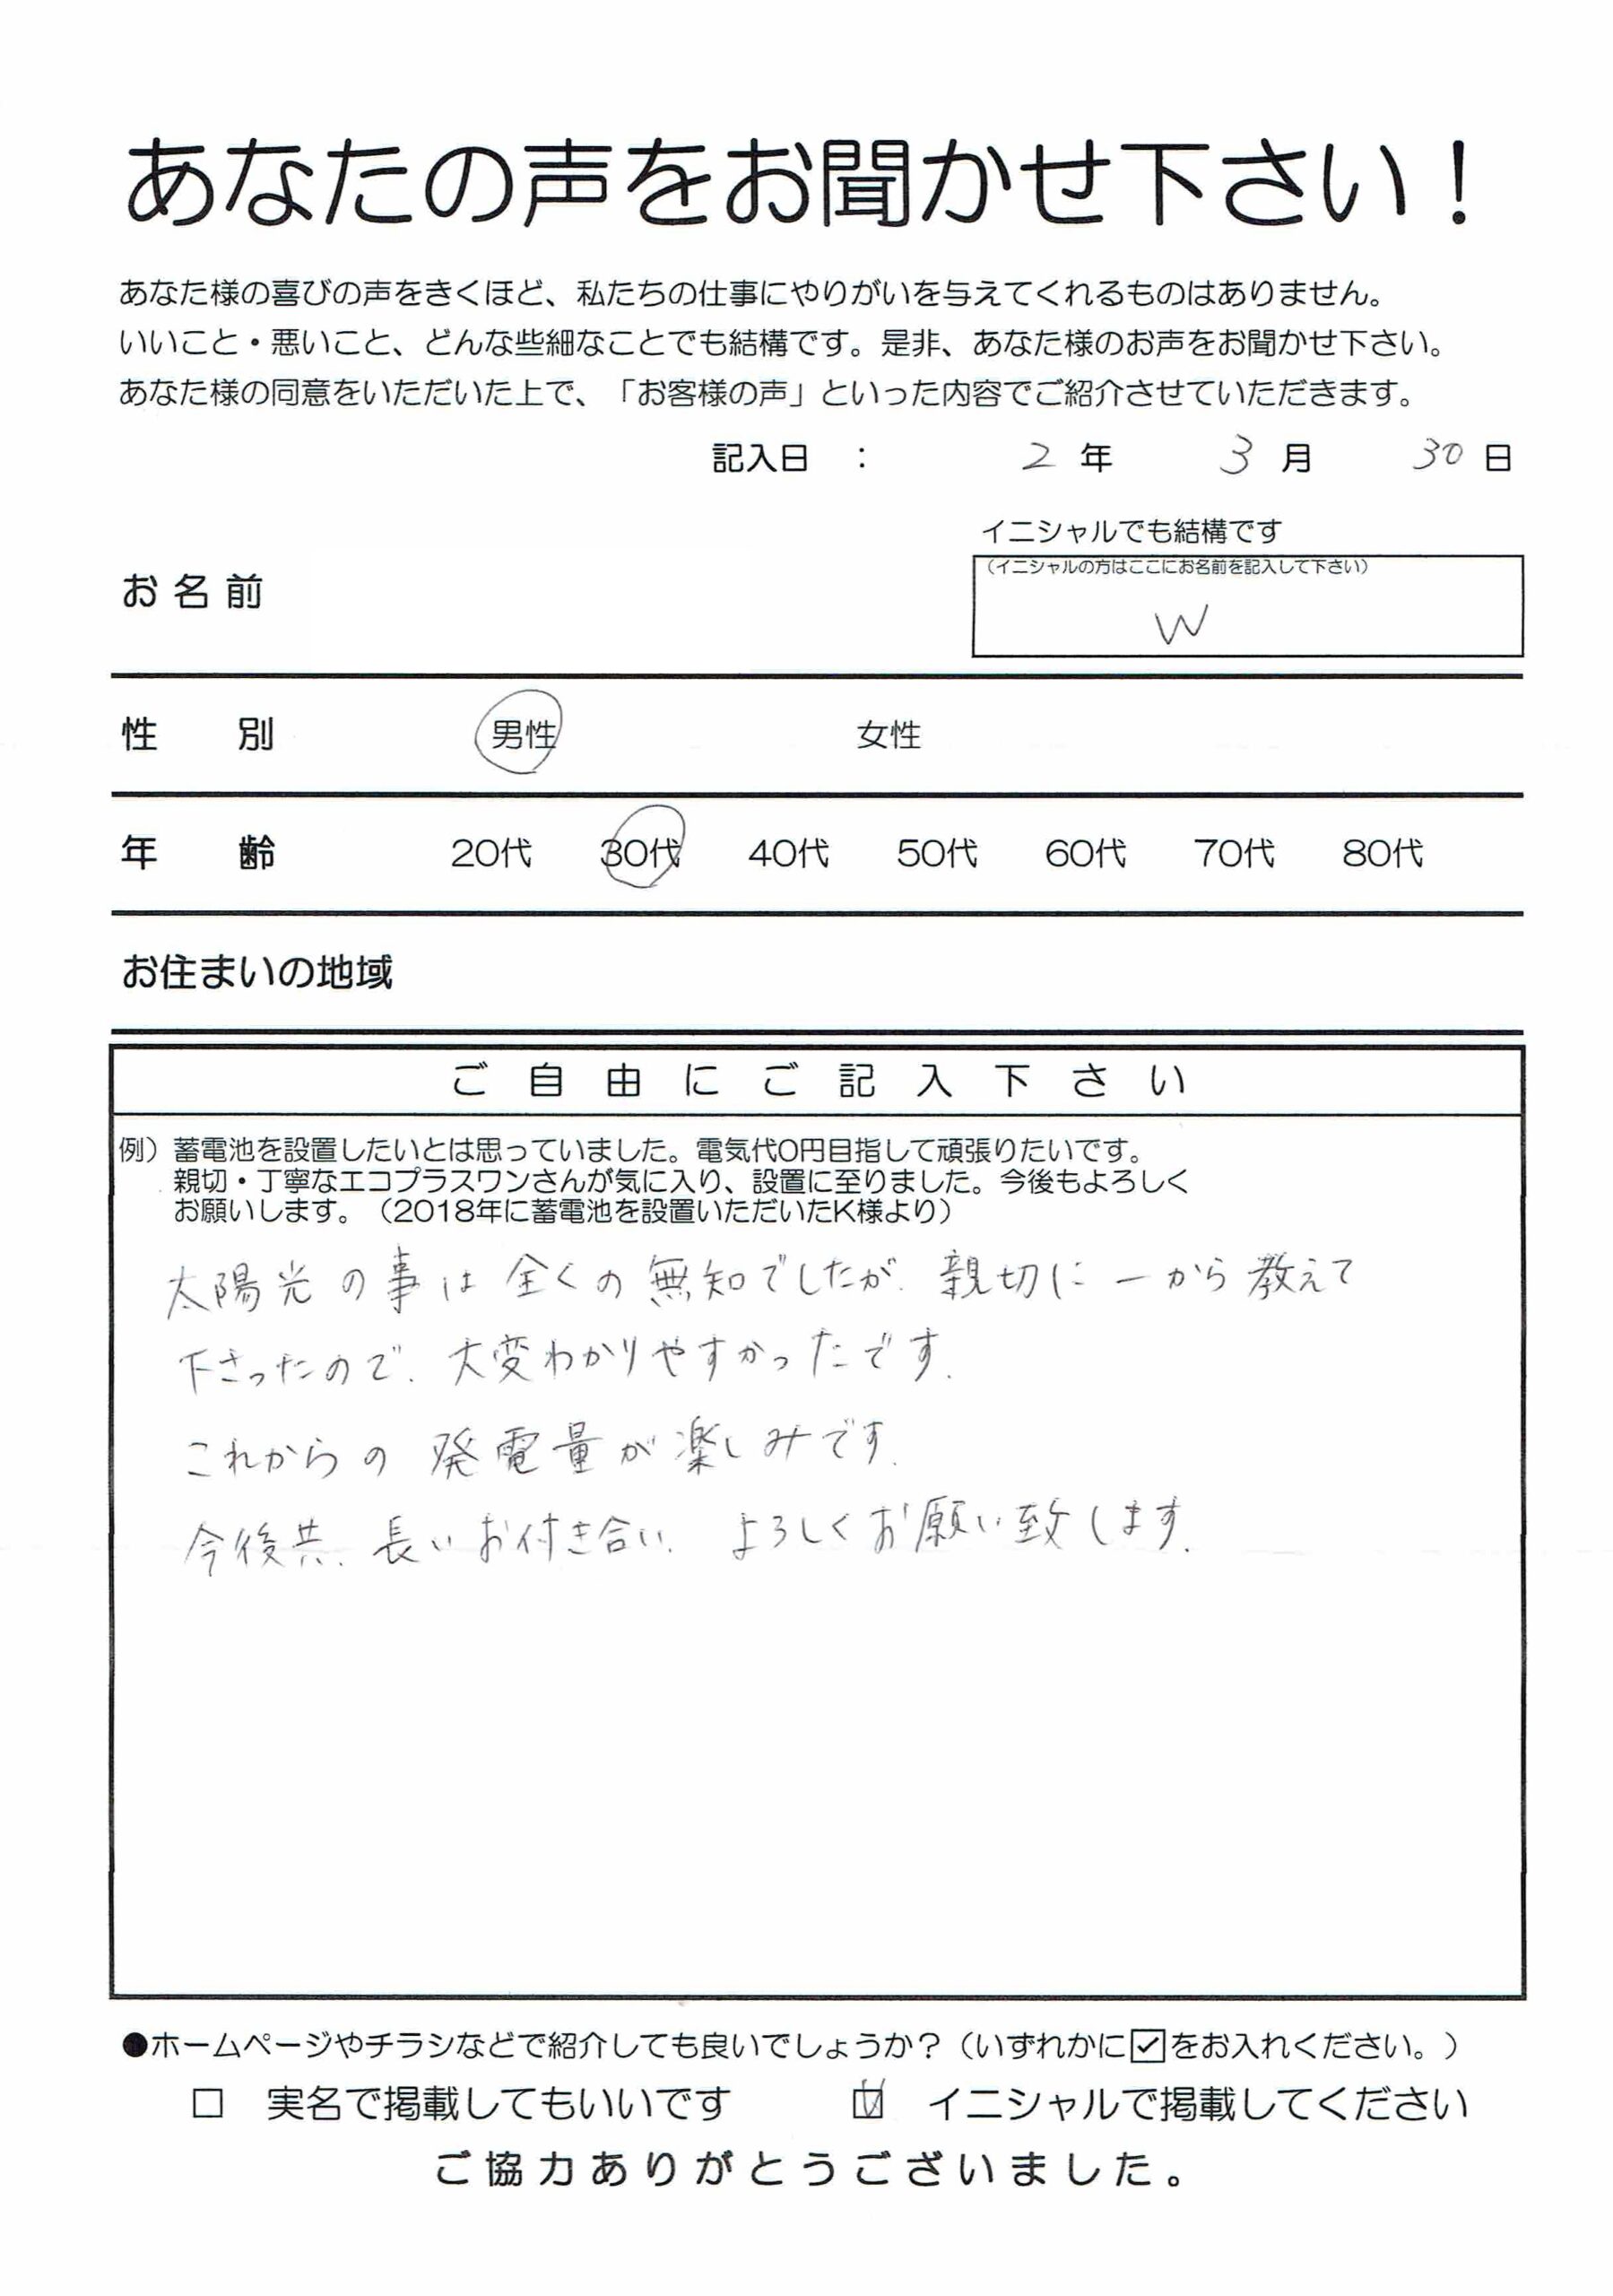 あなたの声をお聞かせ下さい！
あなた様の喜びの声をきくほど、私たちの仕事にやりがいを与えてくれるものはありません。
いいこと・悪いこと、どんな些細なことでも結構です。是非、あなた様のお声をお聞かせ下さい。
あなた様の同意をいただいた上で、「お客様の声」といった内容でご紹介させていただきます。
記入日 ： 2 年 3 月 30 日
イニシャルでも結構です
（イニシャルの方はここにお名前を記入して下さい）
お名前
W
性 別 男性 女性
年 齢 20代 30代 40代 50代 60代 70代 80代
お住まいの地域
ご自由にご記入下さい
例）蓄電池を設置したいとは思っていました。電気代0円目指して頑張りたいです。
親切・丁寧なエコプラスワンさんが気に入り、設置に至りました。今後もよろしく
お願いします。（2018年に蓄電池を設置いただいたK様より）
太陽光の事は全くの無知でしたが、親切に一から教えて
下さったので、大変わかりやすかったです。
これからの発電量が楽しみです。
今後共、長いお付き合い、よろしくお願い致します。
●ホームページやチラシなどで紹介しても良いでしょうか？（いずれかに☑をお入れください。）
□ 実名で掲載してもいいです ☑ イニシャルで掲載してください
ご協力ありがとうございました。